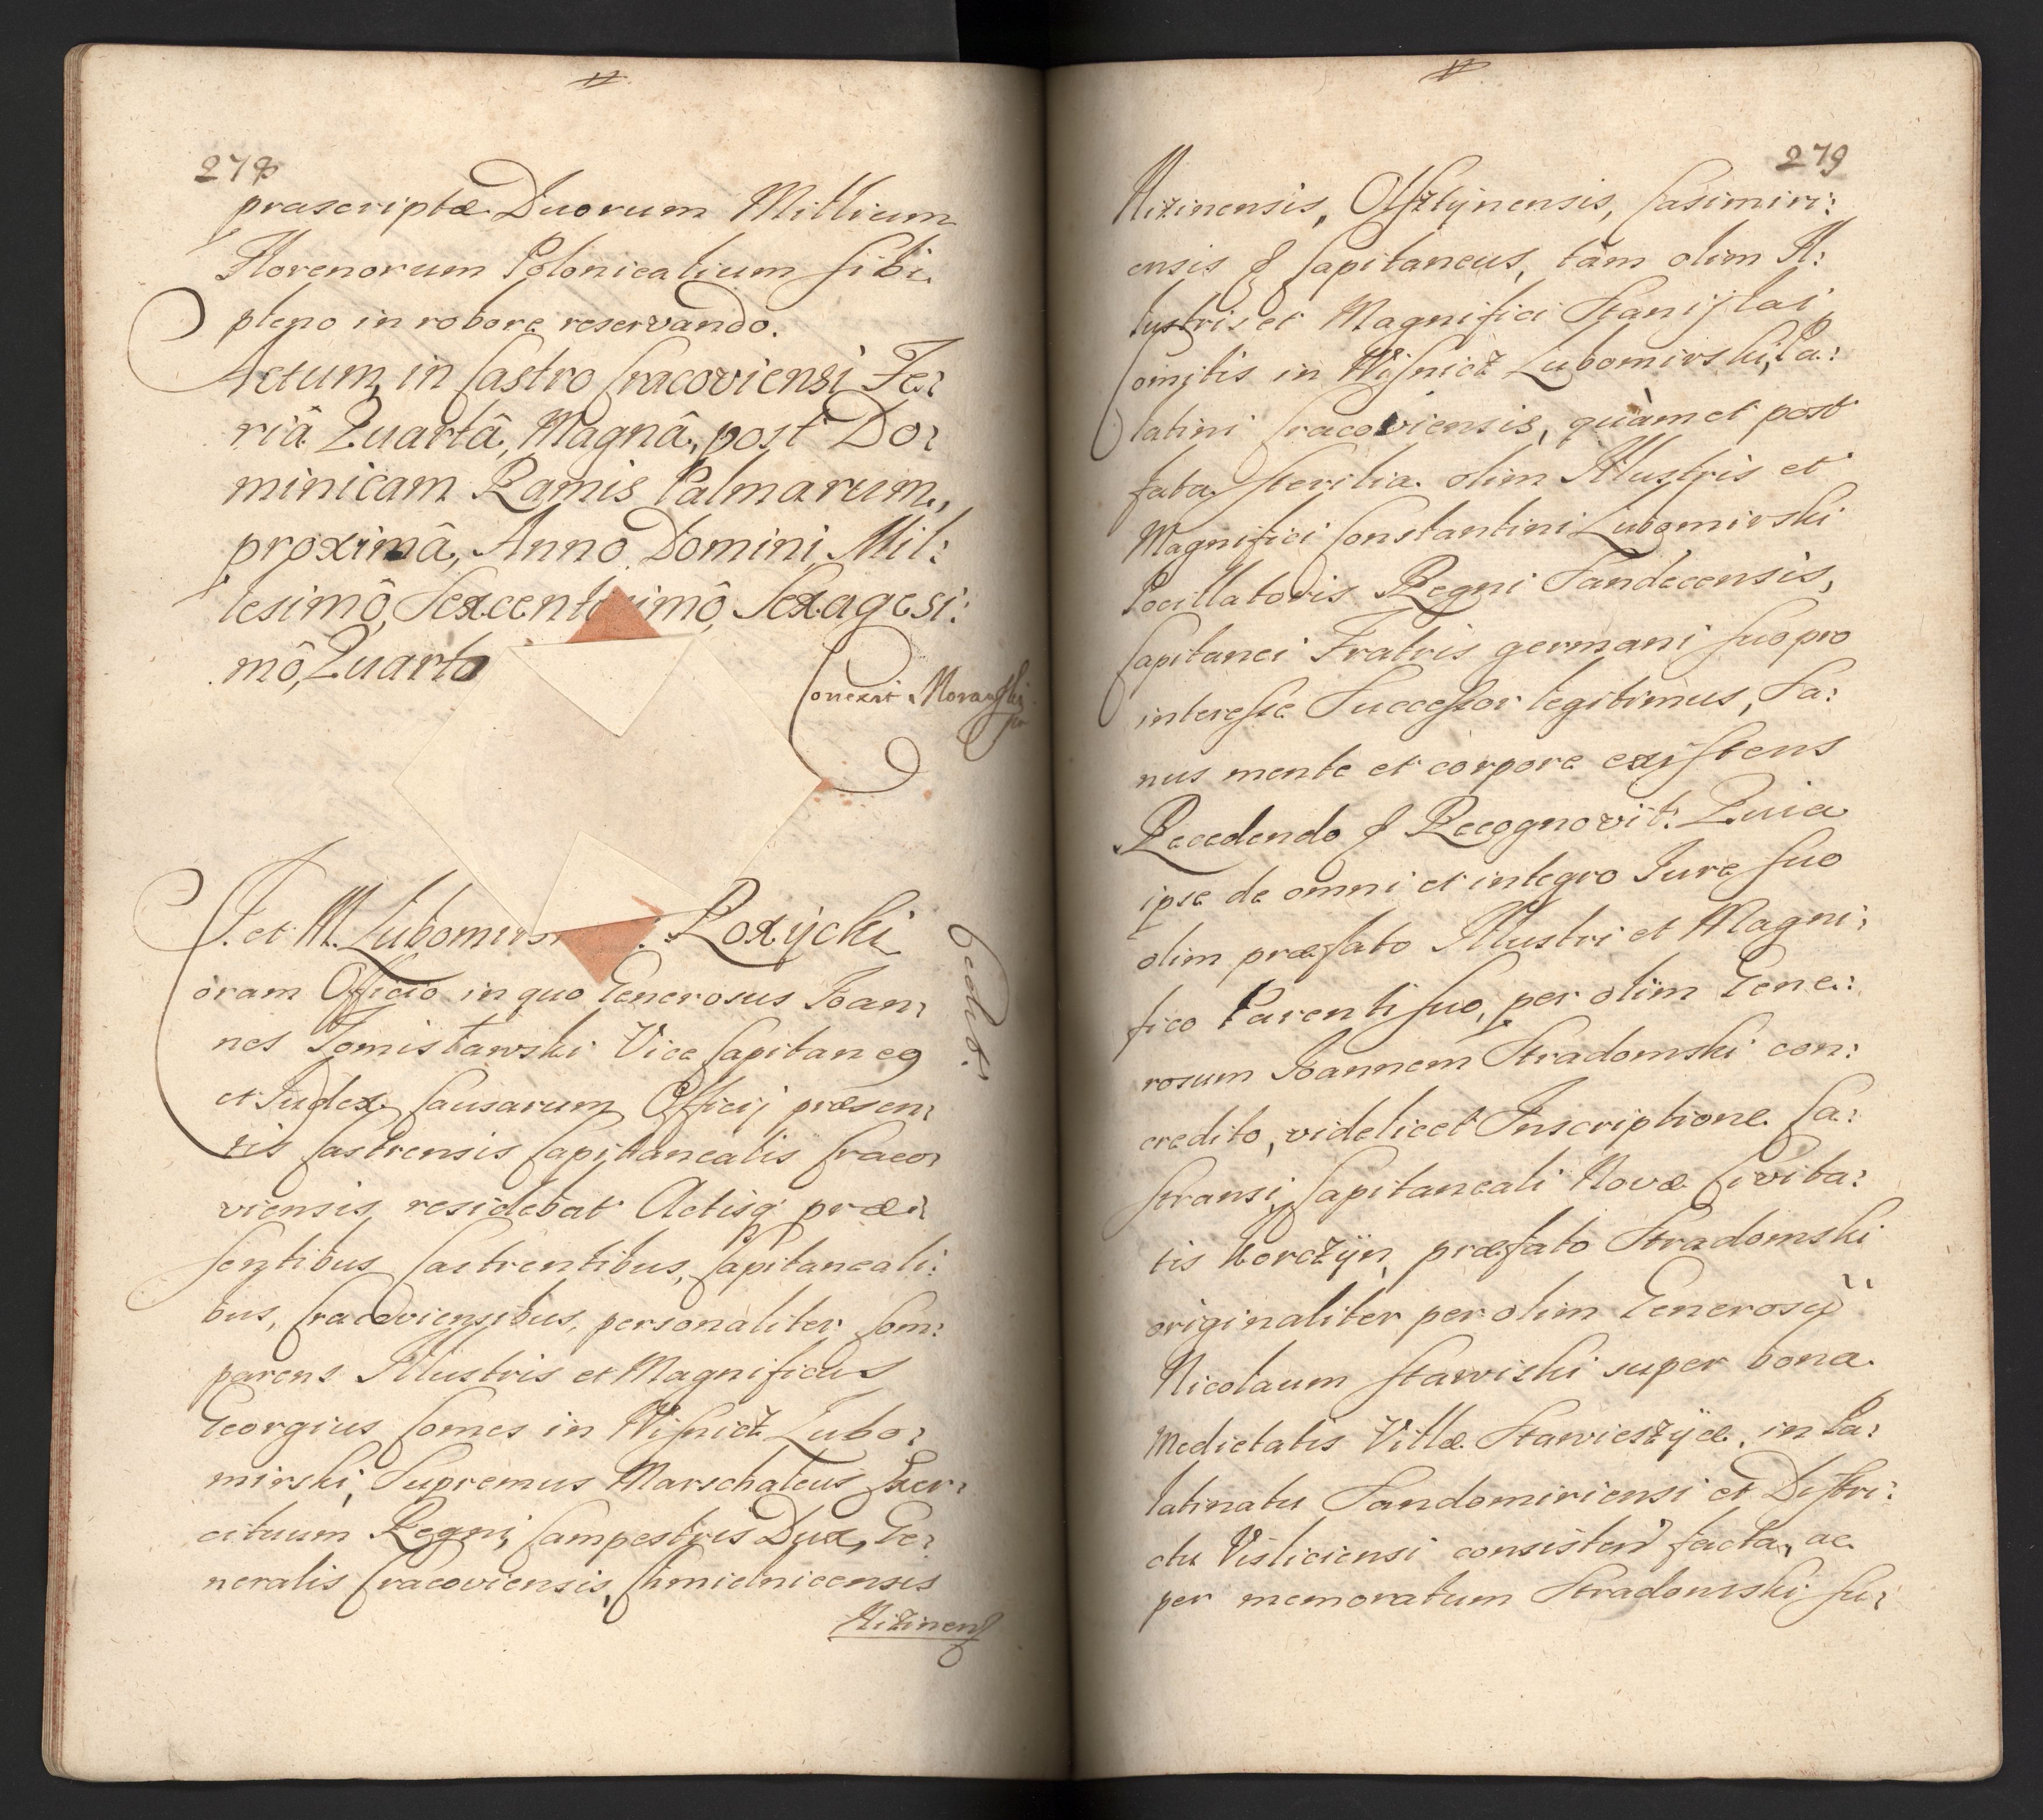 278
præscriptæ Duorum Millium
Florenorum Polonicalium sibi
pleno in robore reservando.
Actum in Castro Cracoviensi Fe:
riâ Quartâ, Magnâ, post Do:
minicam Ramis Palmarum,
proximâ, Anno Domini Mil:
lesimô, Sexcentesimô, Sexagesi:
mô, Quarto
Conexit Morawski
I. et M. Lubomirski Roxÿcki
Cedit.
Coram Officio in quo Generosus Ioan:
nes Tomisławski Vice Capitaneg
et Iudex Causarum Officij præsen:
tis Castrensis Capitanealis Craco:
viensis residebat Actisq præ:
sentibus Castrentibus, Capitaneali:
bus, Cracoviensibus, personaliter Com:
parens Illustris et Magnificus
Georgius Comes in Wisnicz Lubo:
mirski, Supremus Marschalcus Exer:
cituum Regni, Campestris Dux, Ge:
neralis Cracoviensis, Chmielnicensis
Nizinens
279
Nizinensis, Olsztÿnensis, Casimiri:
ensis & Capitaneus, tàm olim Il:
lustris et Magnifici Stanislai
Comitis in Wisnicz Lubomirski, Pa:
latini Cracoviensis, quàm et post
fata sterilia olim Illustris et
Magnifici Constantini Lubomirski
Pocillatoris Regni Sandecensis,
Capitanei Fratris germani suo pro
interesse Successor legitimus, Sa:
nus mente et corpore existens
Recedendo & Recognovit. Quia
ipse de omni et integro Iure suo
olim præfato Illustri et Magni:
fico Parenti suo, per olim Gene:
rosum Ioannem Stradomski con:
credito, videlicet Inscriptione Ca:
strensi Capitaneali Novæ Civita:
tis Korczÿn, præfato Stradomski
originaliter per olim Generosu
Nicolaum Stawiski super bona
Medietatis Villæ Stawieszÿcæ, in Pa:
latinatu Sandomiriensi et Distri:
ctu Visliciensi consisten facta, ac
per memoratum Stradomski su: